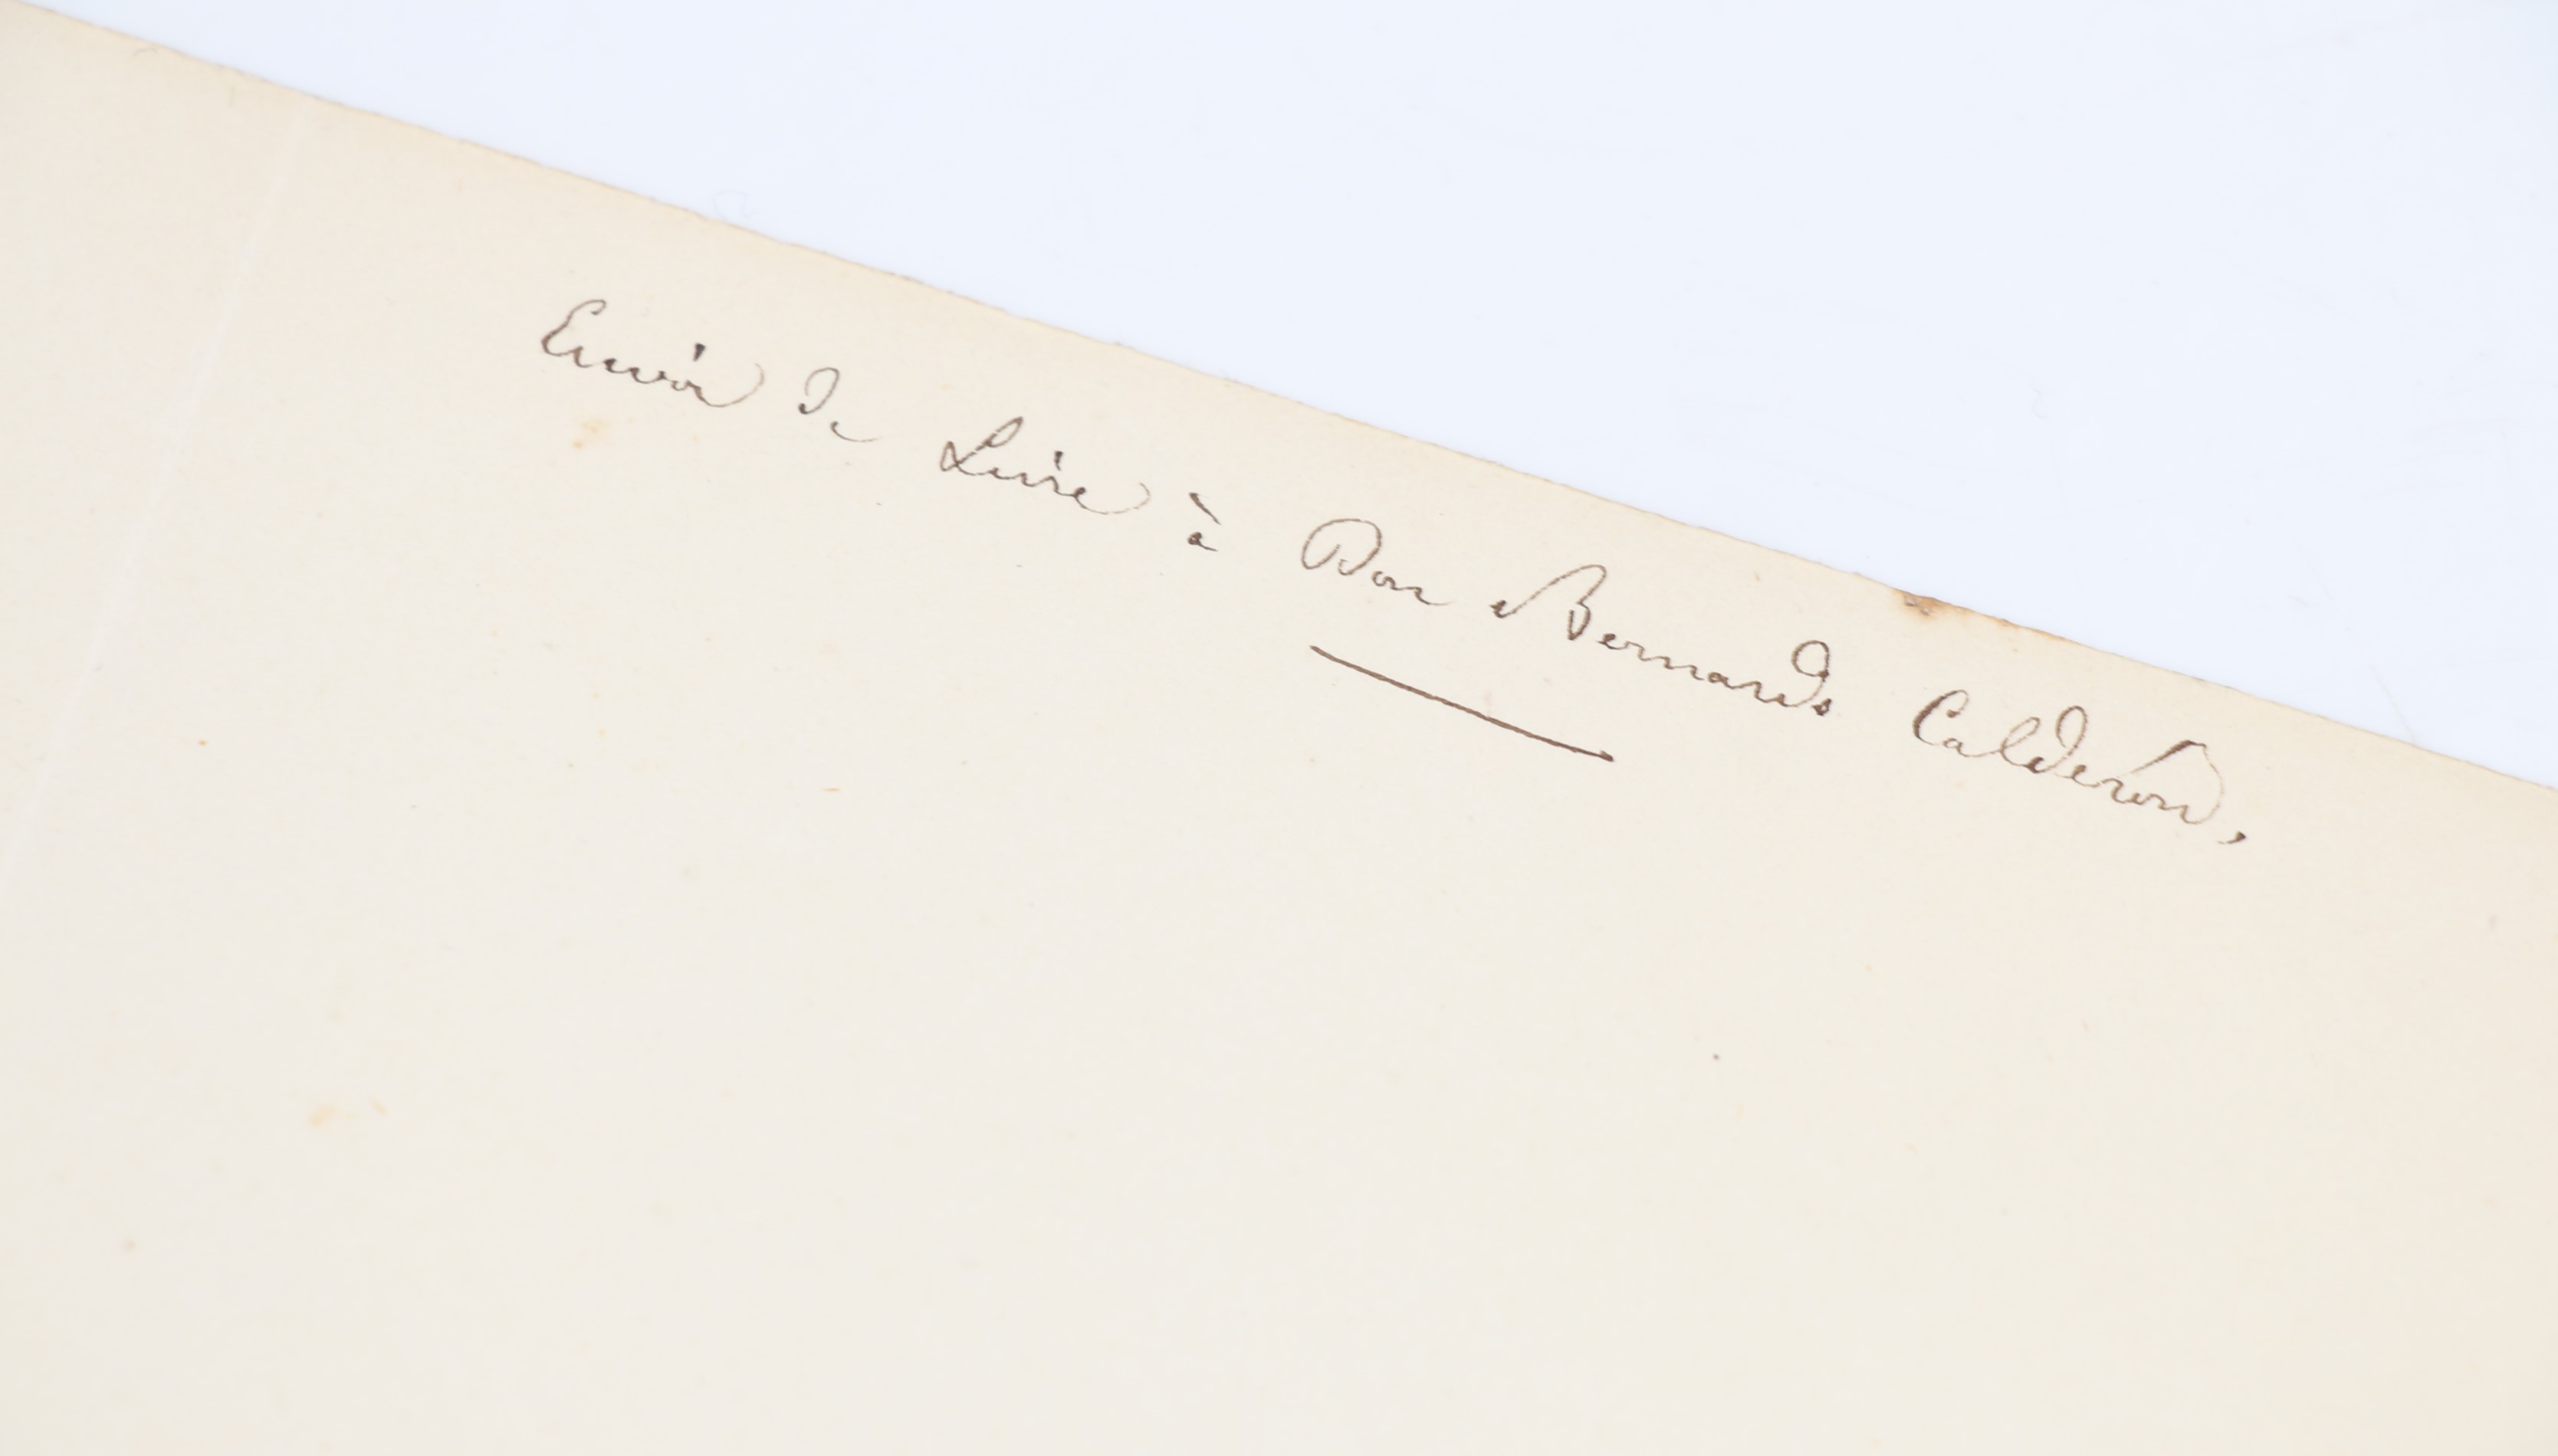 Envoi de Livre à Don Bernardo Calderón,